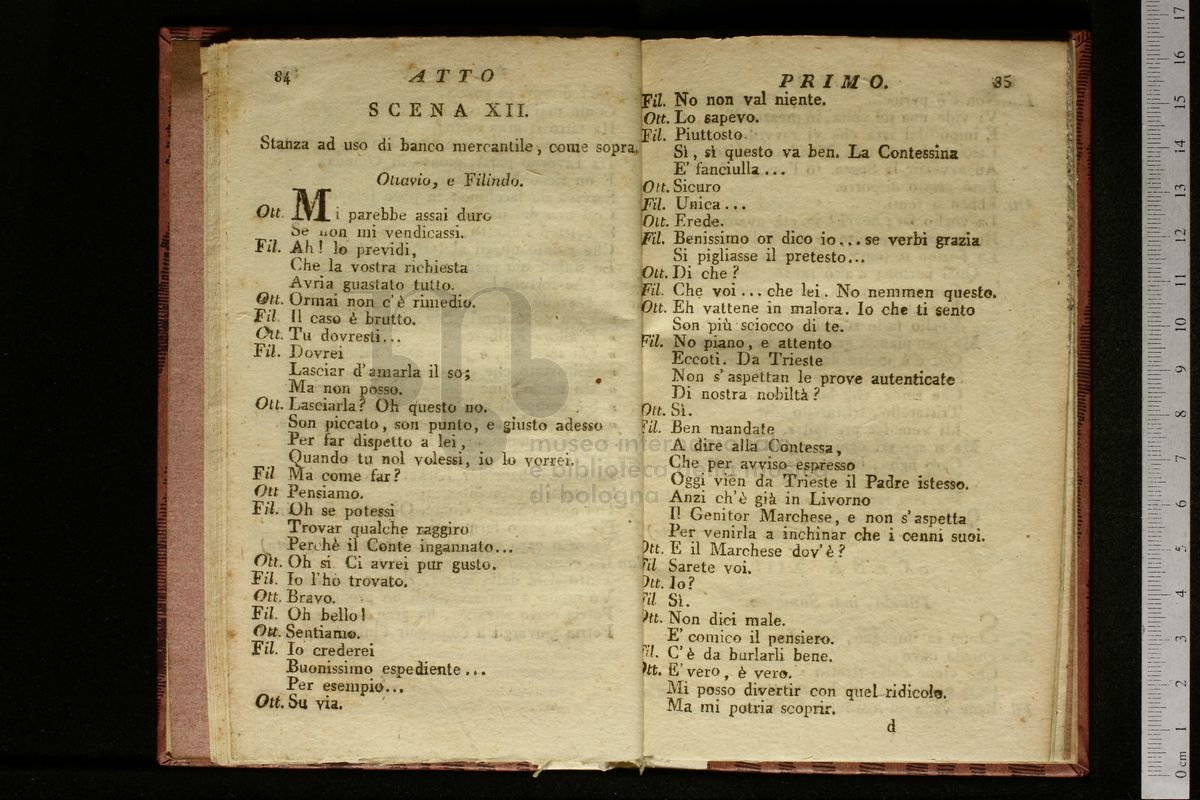 84 ATTO
SCENA XII.
Stanza ad uso di banco mercantile, come sopra.
Ottavio, e Filindo.
Ott. Mi parebbe assai duro
Se non mi vendicassi.
Fil. Ah! lo previdi,
Che la vostra richiesta
Avria guastato tutto.
Ott. Ormai non c'è rimedio.
Fil. Il caso è brutto.
Ott. Tu dovresti...
Fil. Dovrei
Lasciar d'amarla il so;
Ma non posso.
Ott. Lasciarla? Oh questo no.
Son piccato, son punto, e giusto adesso
Per far dispetto a lei,
Quando tu nol volessi, io lo vorrei.
Fil Ma come far?
Ott Pensiamo.
Fil. Oh se potessi
Trovar qualche raggiro
Perchè il Conte ingannato...
Ott. Oh si. Ci avrei pur gusto.
Fil. Io l'ho trovato.
Ott. Bravo.
Fil. Oh bello!
Ott. Sentiamo.
Fil. Io crederei
Buonissimo espediente...
Per esempio...
Ott. Su via.
PRIMO. 85
Fil. No non val niente.
Ott. Lo sapevo.
Fil. Piuttosto.
Sì, sì questo va ben. La Contessina
E' fanciulla...
Ott. Sicuro
Fil. Unica...
Ott. Erede.
Fil. Benissimo or dico io...se verbi grazia
Si pigliasse il pretesto...
Ott. Di che?
Fil. Che voi...che lei. No nemmen questo.
Ott. Eh vattene in malora. Io che ti sento
Son più sciocco di te.
Fil. No piano, e attento
Eccoti. Da Trieste
Non s'aspettan le prove autenticate
Di nostra nobiltà?
Ott. Sì.
Fil. Ben mandate
A dire alla Contessa,
Che per avviso espresso
Oggi vien da Trieste il Padre istesso.
Anzi ch'è già in Livorno
Il Genitor Marchese, e non s'aspetta
Per venirla a inchinar che i cenni suoi.
Ott. E il Marchese dov'è?
Fil Sarete voi.
Ott. Io?
Fil Sì.
Ott. Non dici male.
E' comico il pensiero.
Fil. C'è da burlarli bene.
Ott. E' vero, è vero.
Mi posso divertir con quel ridicolo.
Ma mi potria scoprir.
d
museo internazionale
e biblioteca della musica
di bologna
0 cm 1 2 3 4 5 6 7 8 9 10 11 12 13 14 15 16 17